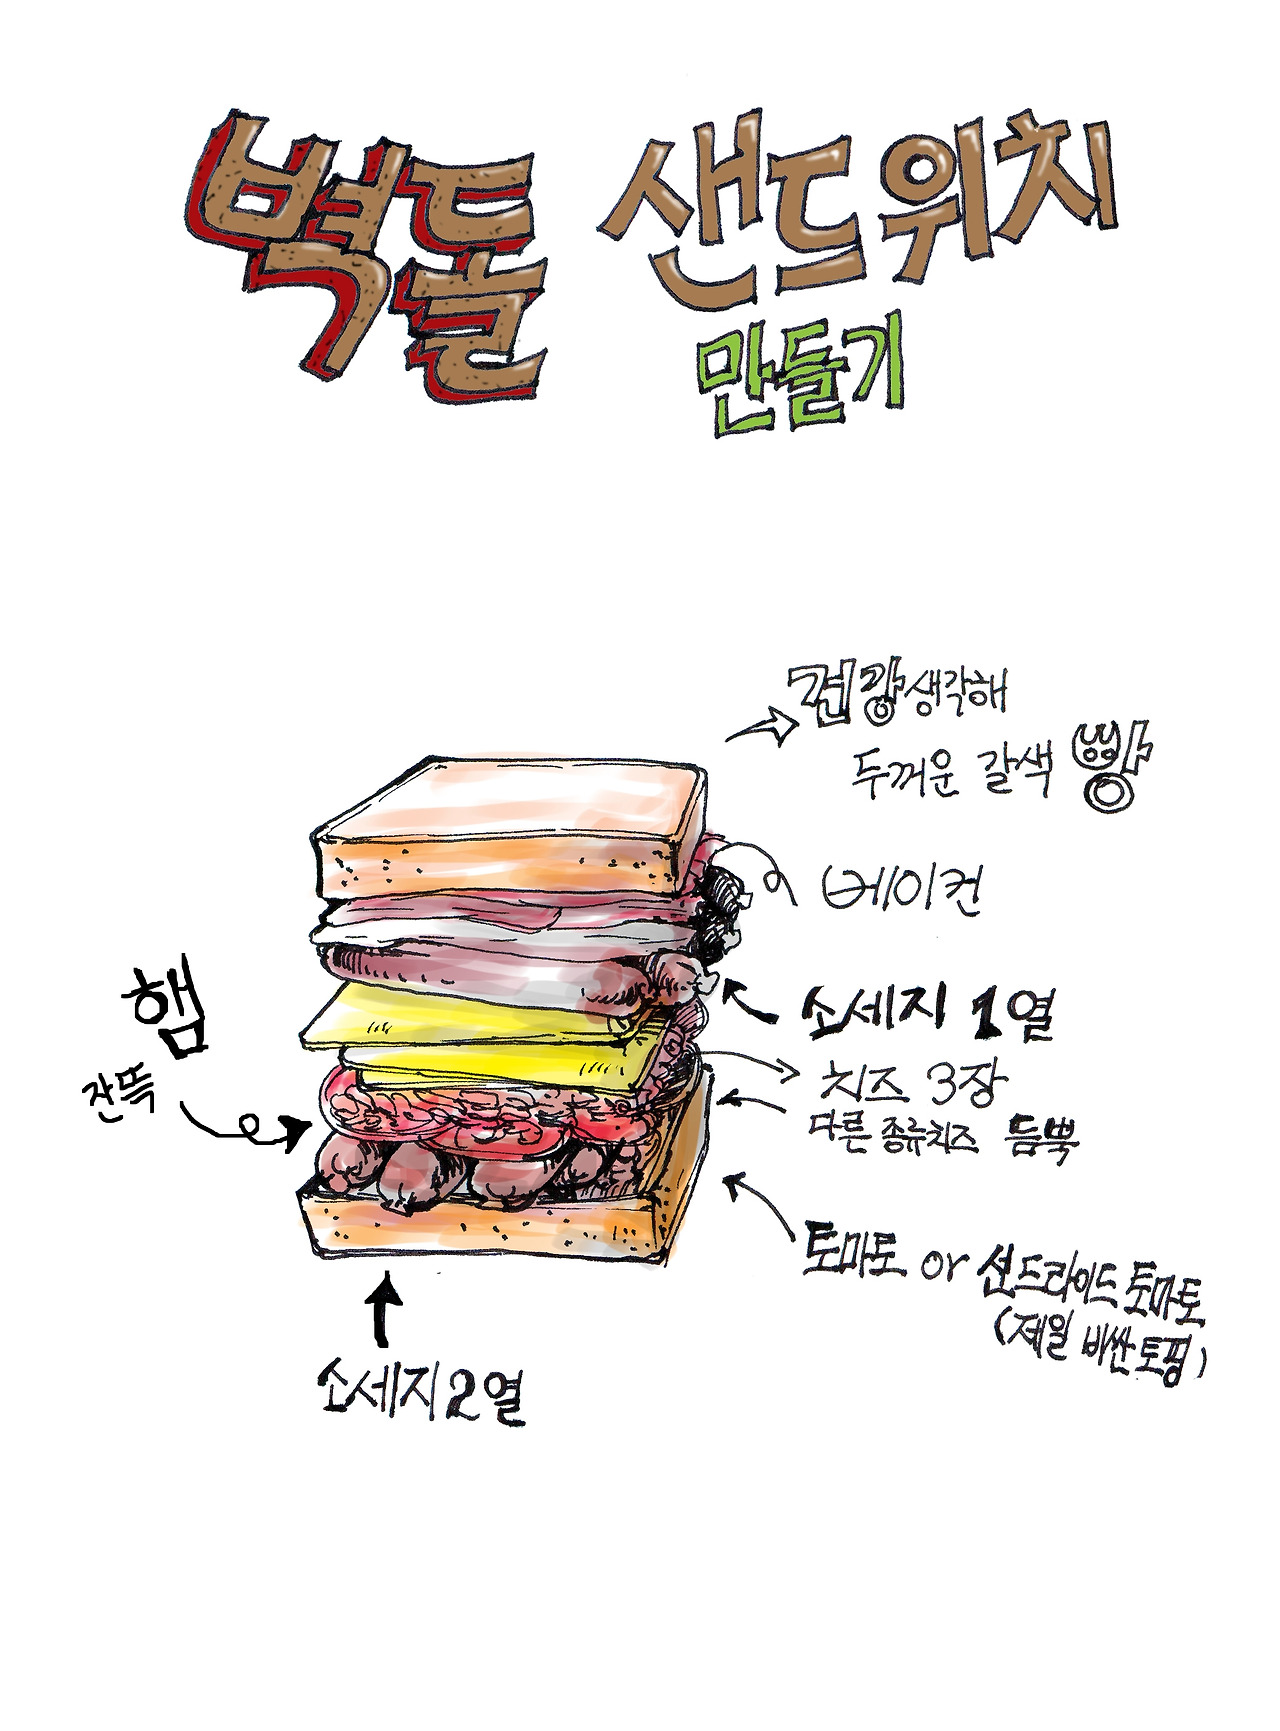 벽돌 샌드위치
만들기
건강생각해
두꺼운 갈색 빵
베이컨
햄
잔뜩
소세지 1열
치즈 3장
다른 종류치즈 듬뿍
토마토 or 썬드라이드 토마토
(제일 비싼토핑)
소세지 2열